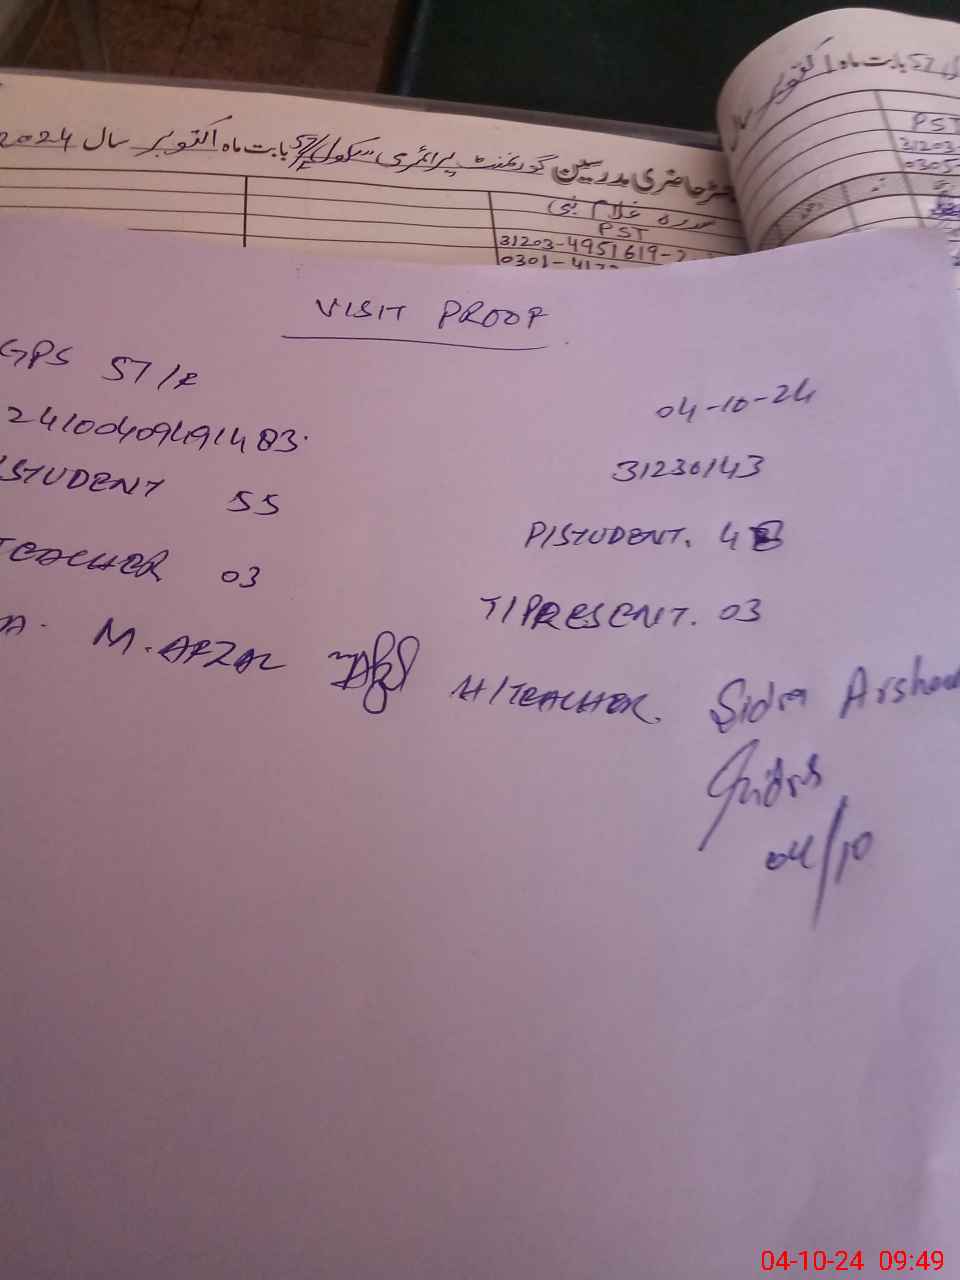 رجسٹر حاضری مدرسین گورنمنٹ پرائمری سکول 57/ بابت ماہ اکتوبر سال 2024
بابت ماہ اکتوبر سال
PST
31203-
0305
سدرہ غلام نبی
PST
31203-4951619-2
0301-41
VISIT PROOF
GPS 57/F
04-10-24
241004094914 83.
31230143
STUDENT 55
P/STUDENT. 48
TEACHER 03
T/PRESENT. 03
A. M. AFZAL
H/TEACHER. Sidra Arshad
04/10
04-10-24 09:49